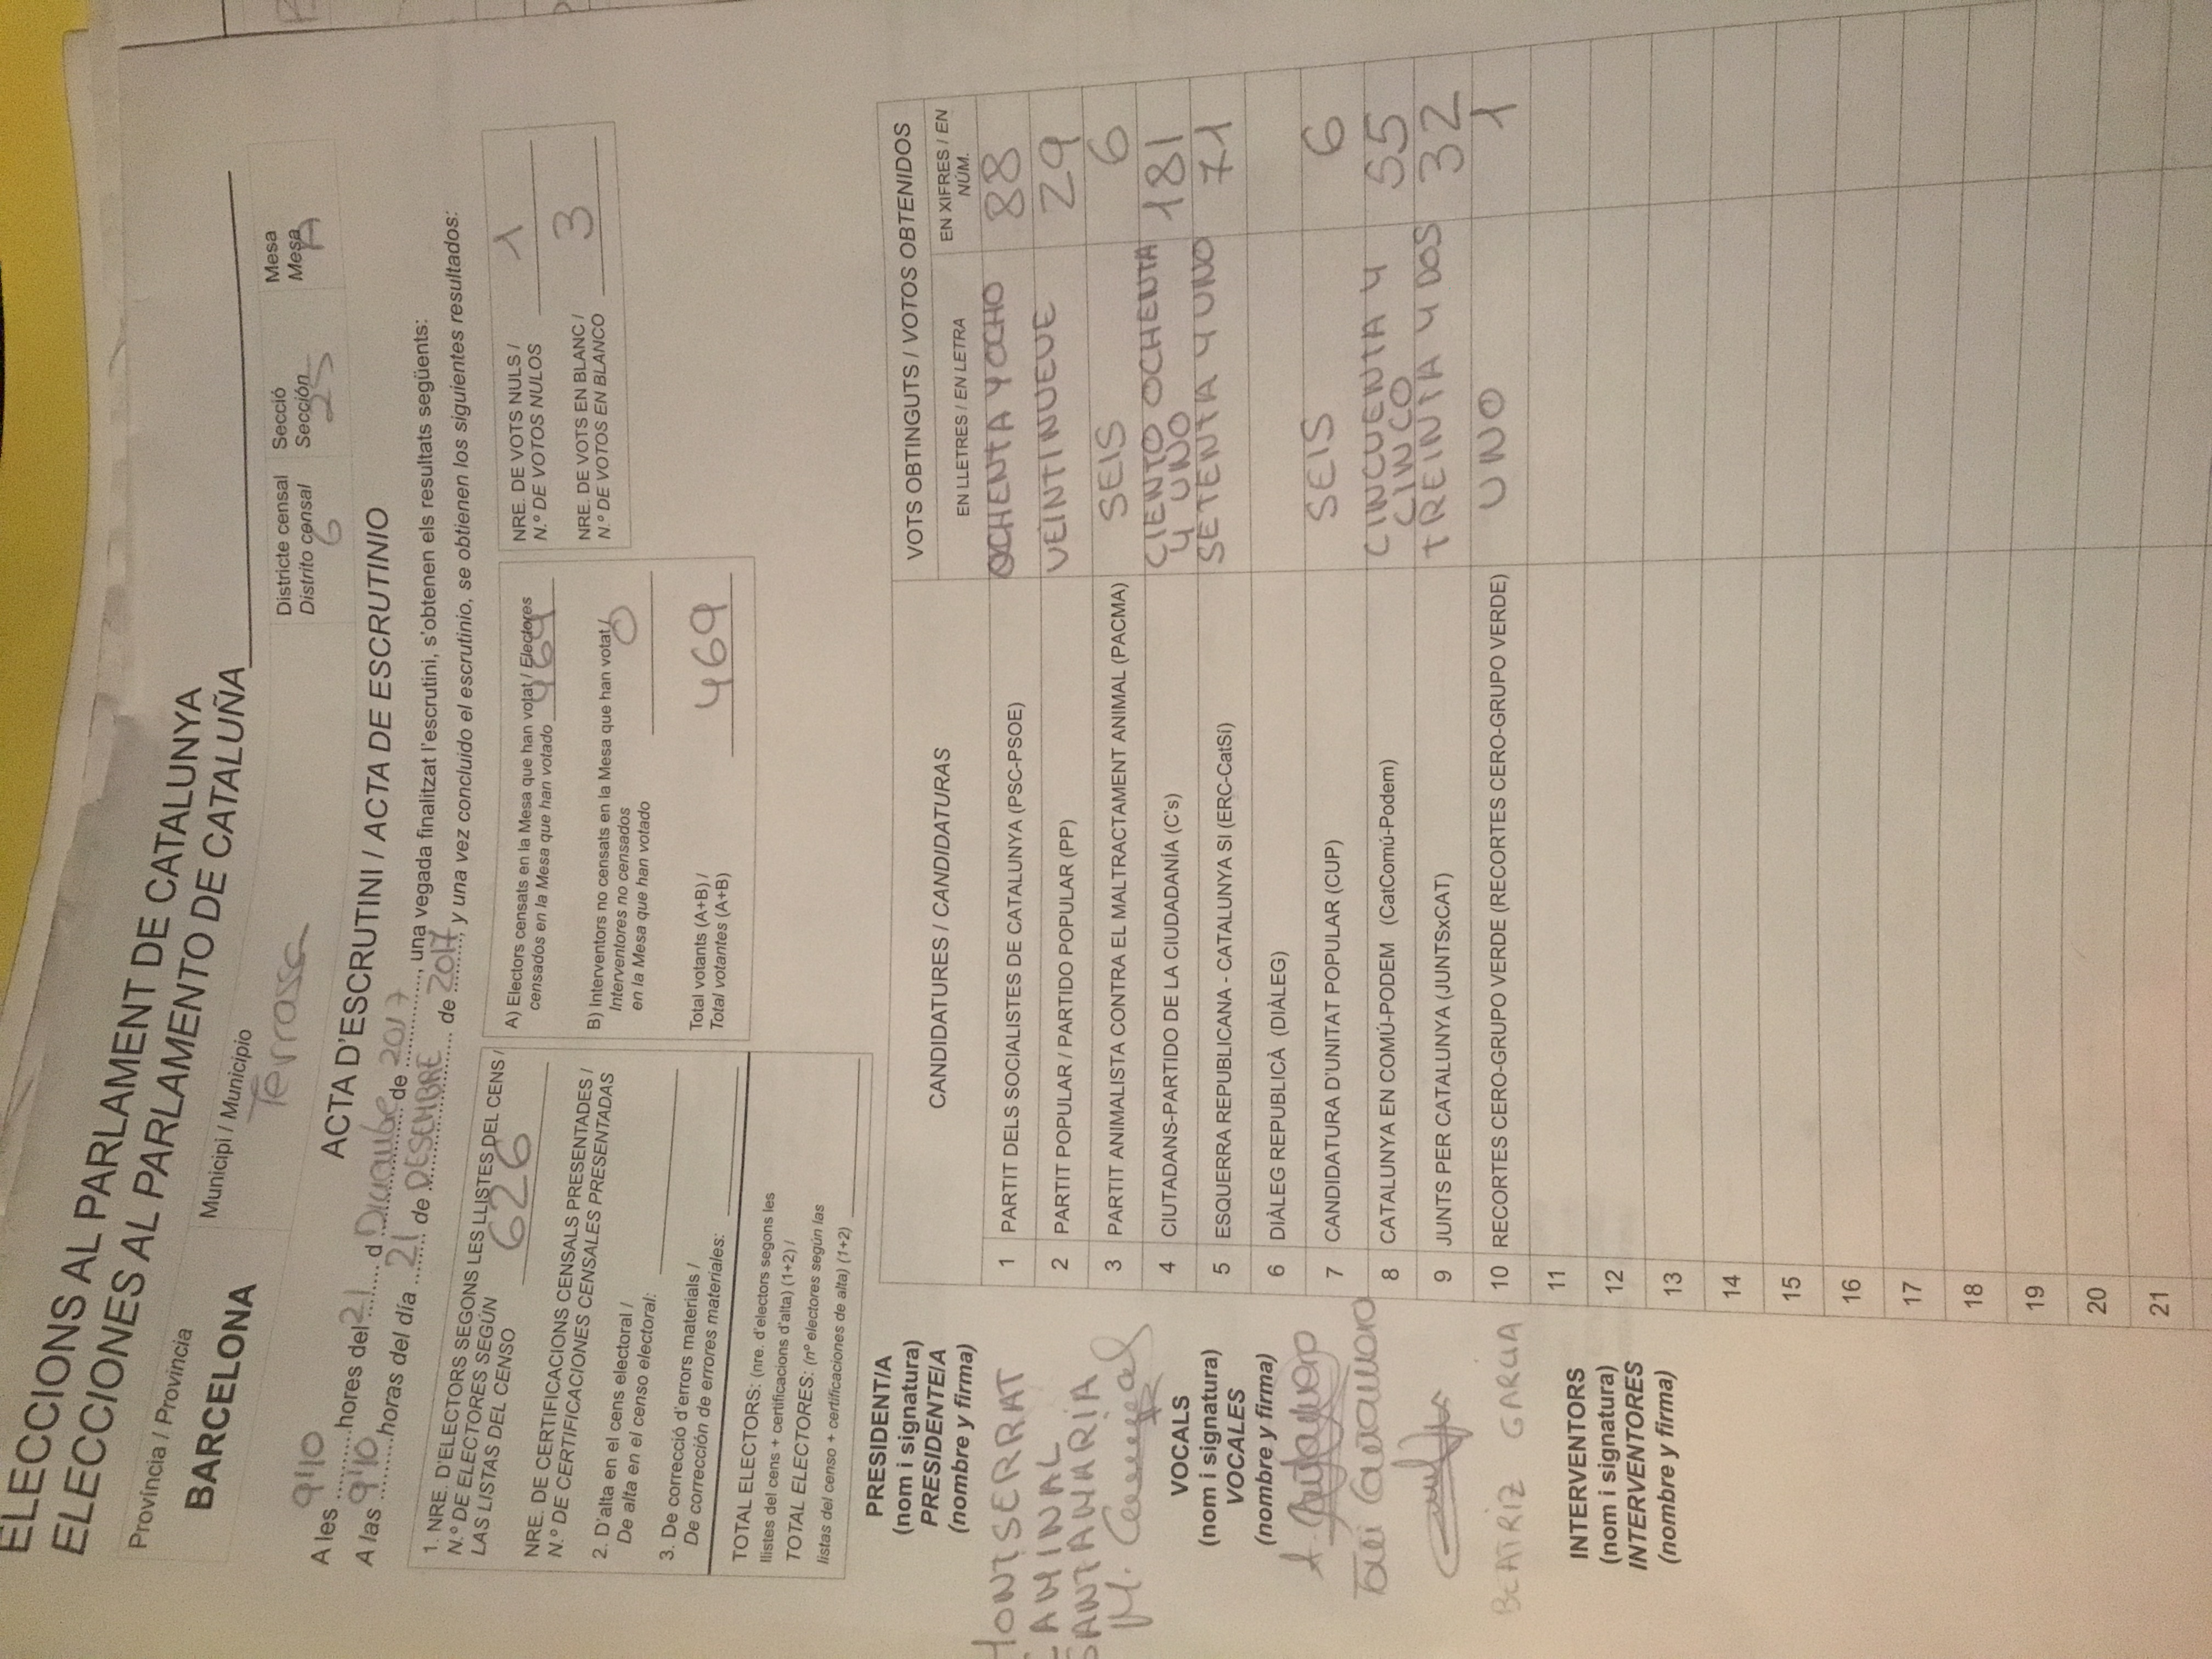 ELECCIONS AL PARLAMENT DE CATALUNYA
ELECCIONES AL PARLAMENTO DE CATALUÑA
Província / Provincia
BARCELONA
Municipi / Municipio
Terrassa
Districte censal
Distrito censal
6
Secció
Sección
25
Mesa
Mesa
A
ACTA D'ESCRUTINI / ACTA DE ESCRUTINIO
A les 9'10 hores del 21 d Diciembe de 2017, una vegada finalitzat l'escrutini, s'obtenen els resultats següents:
A las 9'10 horas del día 21 de DESEMBRE de 2017, y una vez concluido el escrutinio, se obtienen los siguientes resultados:
1. NRE. D'ELECTORS SEGONS LES LLISTES DEL CENS /
N.º DE ELECTORES SEGÚN
LAS LISTAS DEL CENSO 626
NRE. DE CERTIFICACIONS CENSALS PRESENTADES /
N.º DE CERTIFICACIONES CENSALES PRESENTADAS
2. D'alta en el cens electoral /
De alta en el censo electoral:
3. De correcció d'errors materials /
De corrección de errores materiales:
TOTAL ELECTORS: (nre. d'electors segons les
llistes del cens + certificacions d'alta) (1+2) /
TOTAL ELECTORES: (nº electores según las
listas del censo + certificaciones de alta) (1+2)
A) Electors censats en la Mesa que han votat / Electores
censados en la Mesa que han votado 469
B) Interventors no censats en la Mesa que han votat /
Interventores no censados
en la Mesa que han votado 0
Total votants (A+B) /
Total votantes (A+B) 469
NRE. DE VOTS NULS /
N.º DE VOTOS NULOS 1
NRE. DE VOTS EN BLANC /
N.º DE VOTOS EN BLANCO 3
PRESIDENT/A
(nom i signatura)
PRESIDENTE/A
(nombre y firma)
MONTSERRAT
CAMINAL
SANTAMARIA
M. Caminal
VOCALS
(nom i signatura)
VOCALES
(nombre y firma)
BEATRIZ GARCIA
INTERVENTORS
(nom i signatura)
INTERVENTORES
(nombre y firma)
CANDIDATURES / CANDIDATURAS
VOTS OBTINGUTS / VOTOS OBTENIDOS
EN LLETRES / EN LETRA
EN XIFRES / EN
NÚM.
1 PARTIT DELS SOCIALISTES DE CATALUNYA (PSC-PSOE) OCHENTA Y OCHO 88
2 PARTIT POPULAR / PARTIDO POPULAR (PP) VEINTINUEVE 29
3 PARTIT ANIMALISTA CONTRA EL MALTRACTAMENT ANIMAL (PACMA) SEIS 6
4 CIUTADANS-PARTIDO DE LA CIUDADANÍA (C's) CIENTO OCHENTA
Y UNO 181
5 ESQUERRA REPUBLICANA - CATALUNYA SI (ERC-CatSí) SETENTA Y UNO 71
6 DIÀLEG REPUBLICÀ (DIÀLEG)
7 CANDIDATURA D'UNITAT POPULAR (CUP) SEIS 6
8 CATALUNYA EN COMÚ-PODEM (CatComú-Podem) CINCUENTA Y
CINCO 55
9 JUNTS PER CATALUNYA (JUNTSxCAT) TREINTA Y DOS 32
10 RECORTES CERO-GRUPO VERDE (RECORTES CERO-GRUPO VERDE) UNO 1
11
12
13
14
15
16
17
18
19
20
21